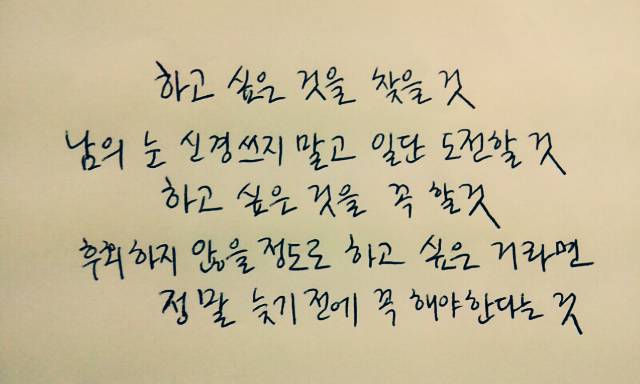 하고 싶은 것을 찾을 것
남의 눈 신경쓰지 말고 일단 도전할 것
하고 싶은 것을 꼭 할것
후회하지 않을 정도로 하고 싶은 거라면
정말 늦기 전에 꼭 해야한다는 것